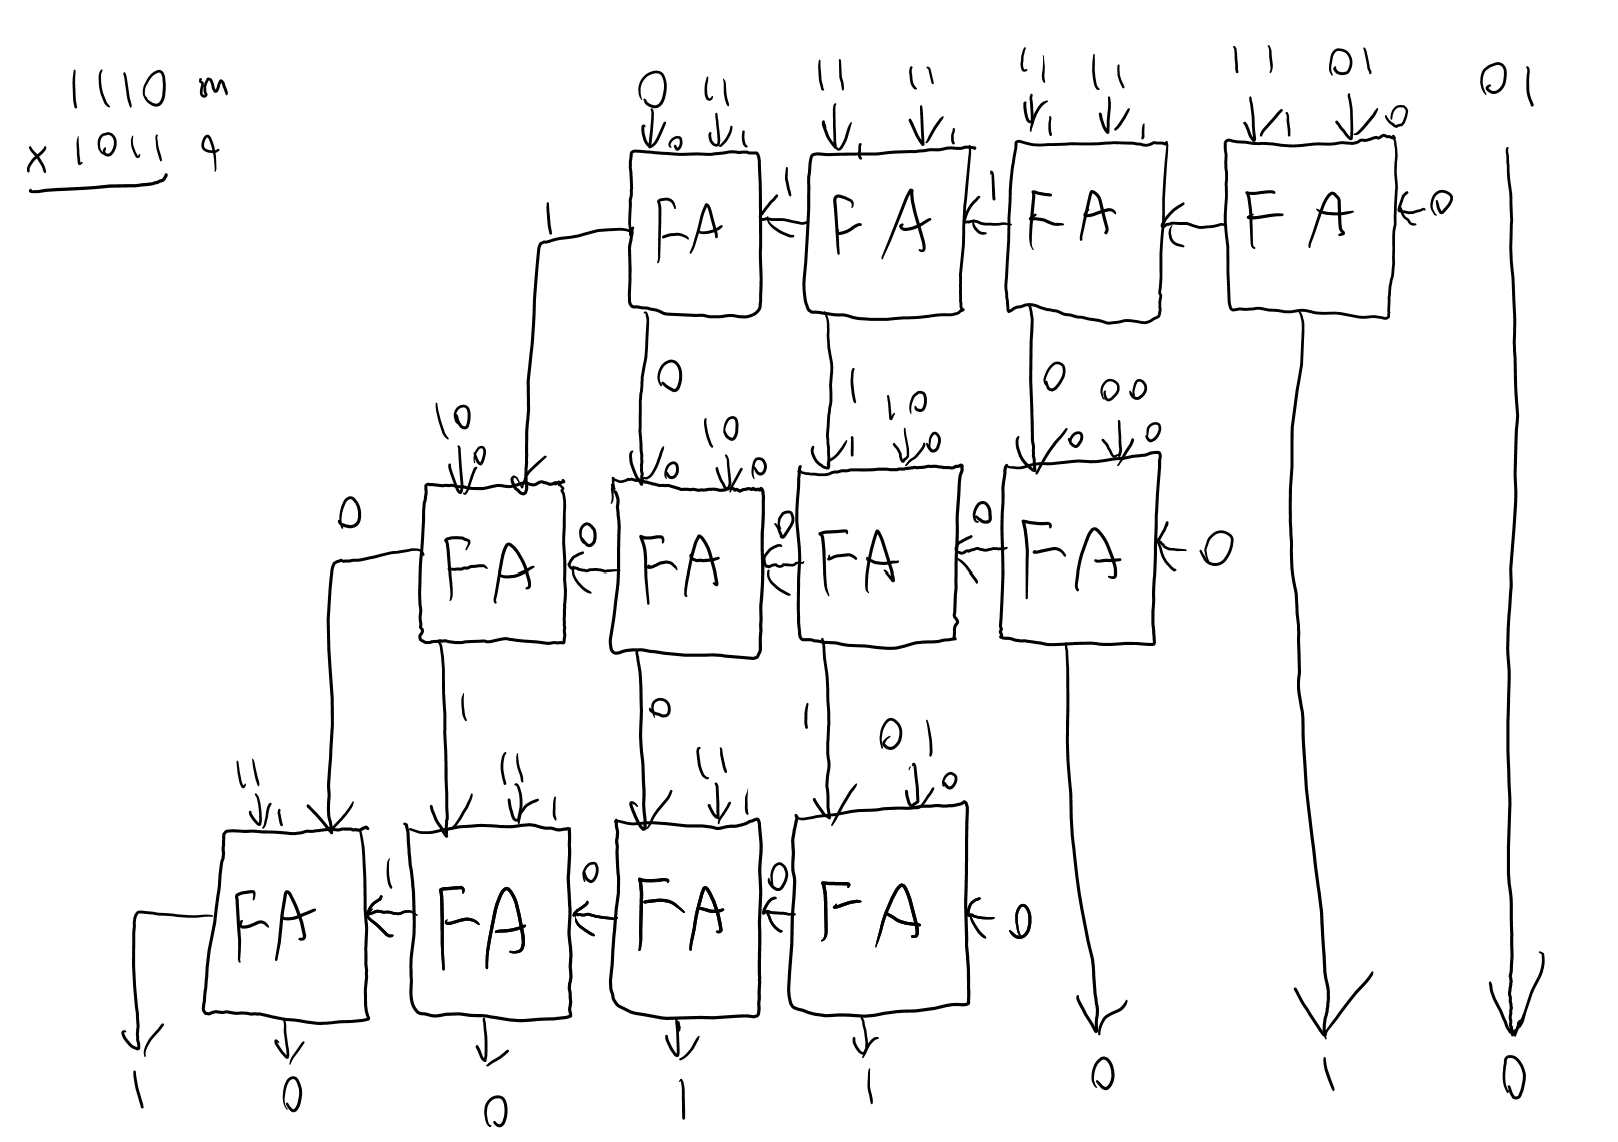 1110 m
x 1011 q
0 11 11 11 11 11 11 01 01
0 1 1 1 1 1 1 0
FA FA FA FA
1 1 1 0
0 1 0
10 10 10 00
0 0 0 1 0 0 0
FA FA FA FA
0 0 0 0 0
1 0 1
11 11 11 01
1 1 1 0
FA FA FA FA
1 0 0 0
1 0 0 1 1 0 1 0